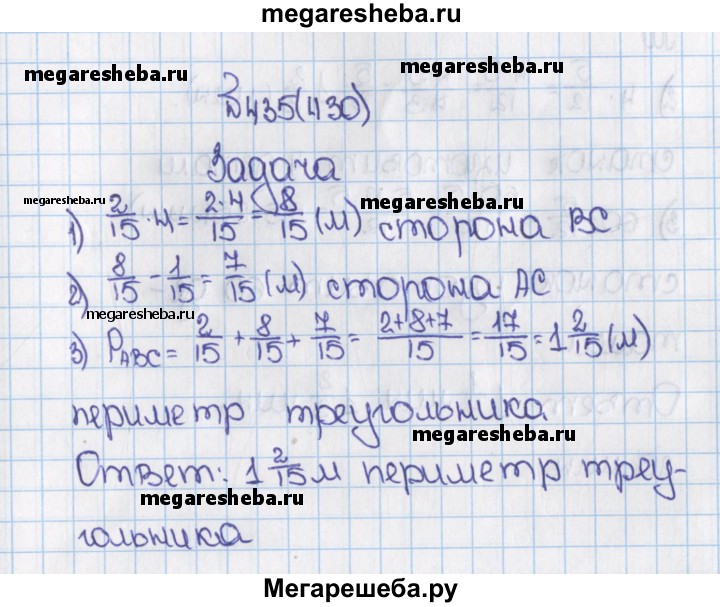 megaresheba.ru
megaresheba.ru megaresheba.ru
№435(430)
Задача
megaresheba.ru megaresheba.ru
1) 2/15 · 4 = 2·4/15 = 8/15 (м) сторона BC
2) 8/15 - 1/15 = 7/15 (м) сторона AC
megaresheba.ru
3) P_ABC = 2/15 + 8/15 + 7/15 = 2+8+7/15 = 17/15 = 1 2/15 (м)
периметр треугольника
megaresheba.ru
Ответ: 1 2/15 м периметр треу-
megaresheba.ru
гольника
Мегарешеба.ру